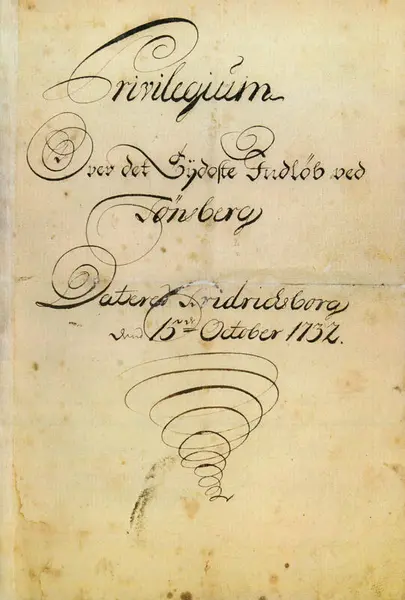 Privilegium
Over det Sydoste Indlöb ved
Tönsberg
Daterd Fridrichsborg
den 15de October 1732.